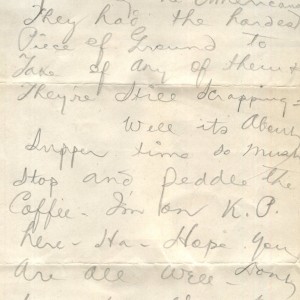 the American
They had the hardest
Piece of Ground to
Take of any of them &
They're Still Scrapping -
Well it's About
Supper time so must
Stop and peddle the
Coffie - I'm on K.P.
here - Ha - Hope you
Are all well - Dont